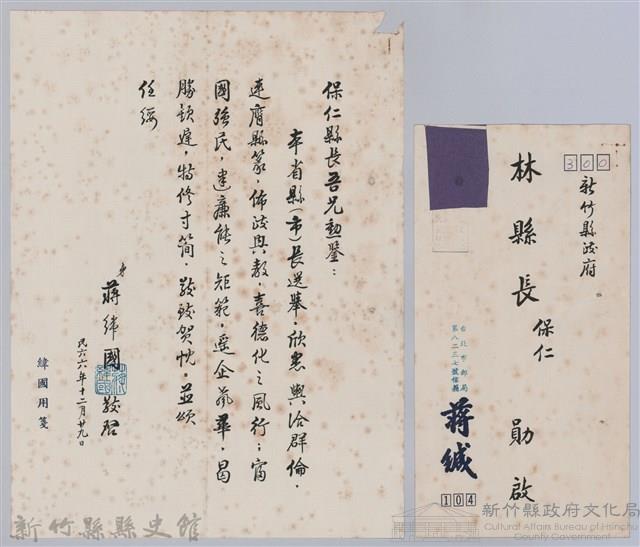 保仁縣長吾兄勳鑒:
本省縣(市)長選舉,欣悉 輿洽群倫,
連膺縣篆,佈政與教,喜德化之風行;富
國強民,建廉能之矩範,遙企風華,曷
勝頌遲,特修寸簡,敬致賀忱,並頌
任綏
弟
蔣緯國敬啓
民六六年十二月廿九日
緯國用箋
300
新竹縣政府
林縣長 保仁 勛啟
台北市郵局
第八二三七號信箱
蔣緘
104
新竹縣縣史館
新竹縣政府文化局
Cultural Affairs Bureau of Hsinchu
County Government